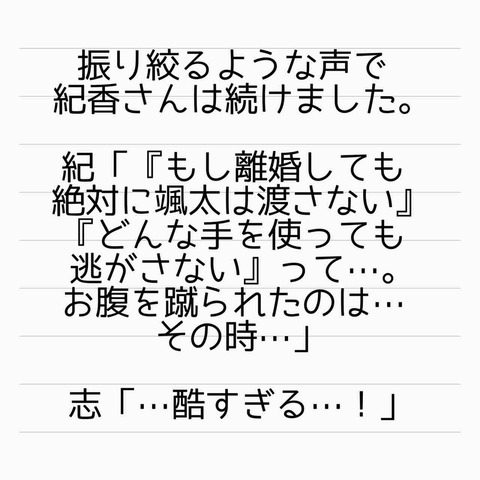 振り絞るような声で
紀香さんは続けました。
紀「『もし離婚しても
絶対に颯太は渡さない』
『どんな手を使っても
逃がさない』って…。
お腹を蹴られたのは…
その時…」
志「…酷すぎる…！」